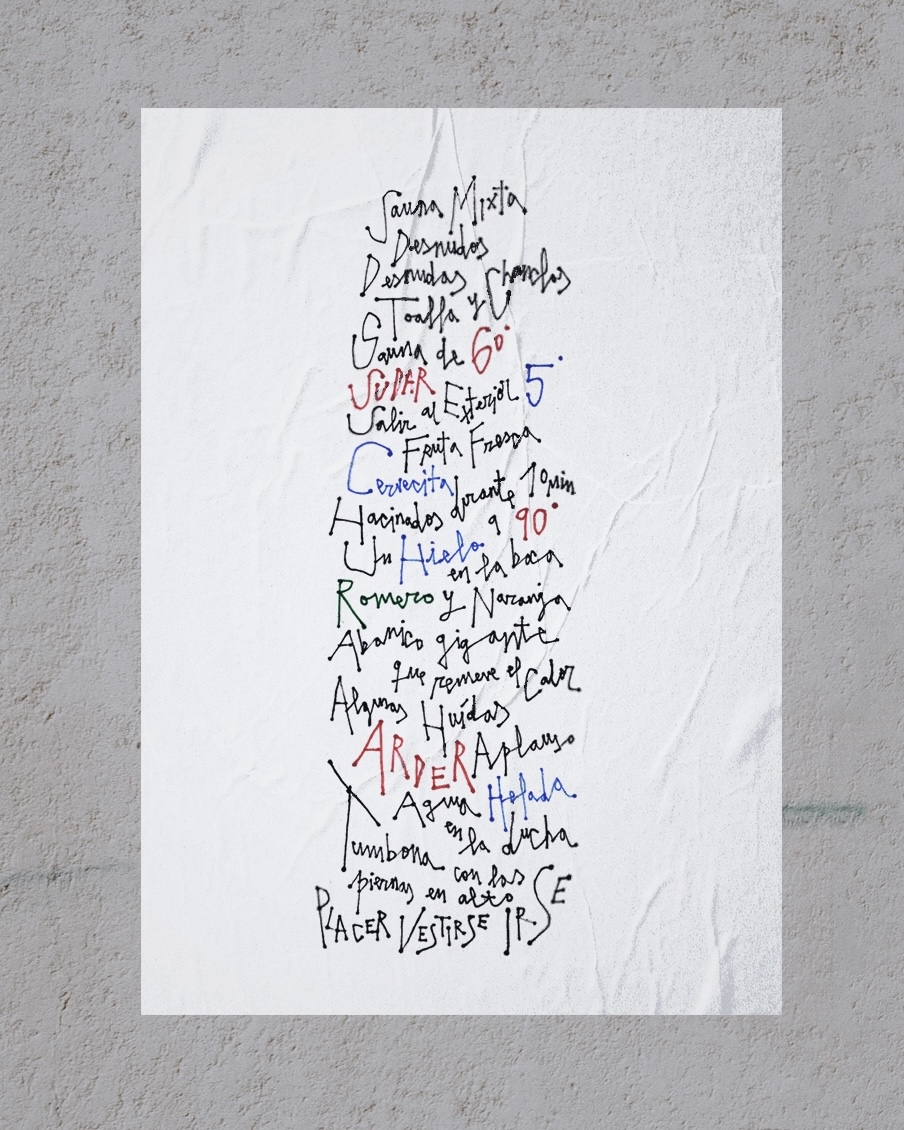 Sauna Mixta
Desnudos
Desnudas Chanclas
Toalla y
Sauna de 60°
SUDAR
Salir al Exterior 5°
Fruta Fresca
Cervecita
Hacinados durante 10 min
a 90°
Un Hielo
en la boca
Romero y Naranja
Abanico gigante
que remueve el Calor
Algunas Huídas
ARDER Aplauso
Agua Helada
en la ducha
Tumbona
con las
piernas en alto
PLACER VESTIRSE IRSE